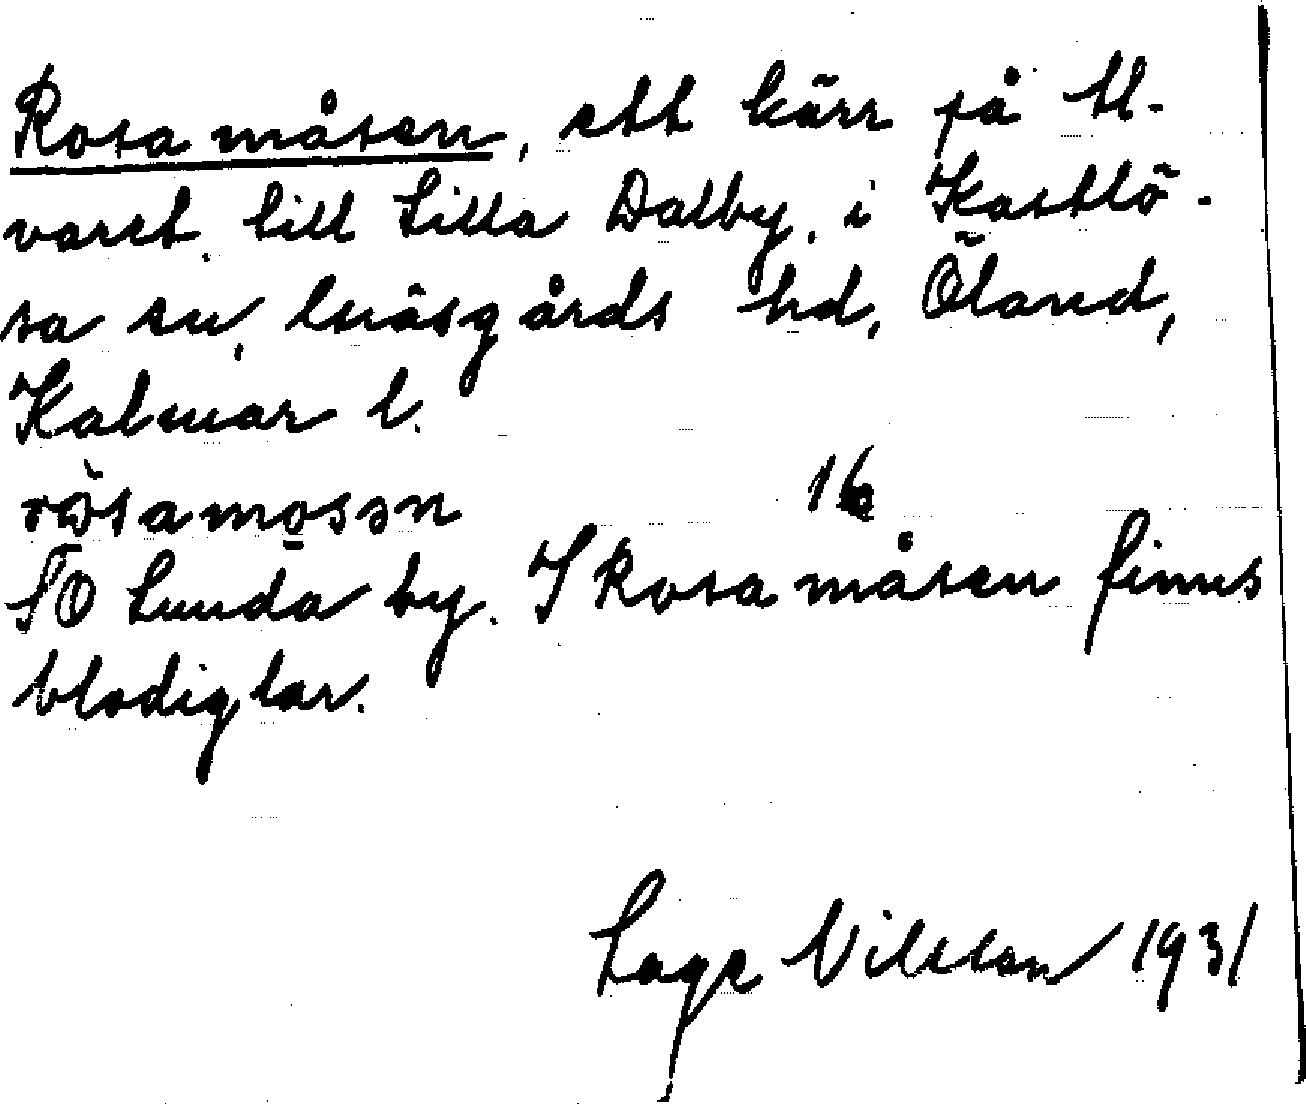 Rosamåsen, ett kärr på Al-
varet till Lilla Dalby, i Kastlö-
sa sn, Gräsgårds hd, Öland,
Kalmar l.
rösamosən 16
SO Lunda by. I Rosamåsen finns
blodiglar.
Lage Nilsson 1931